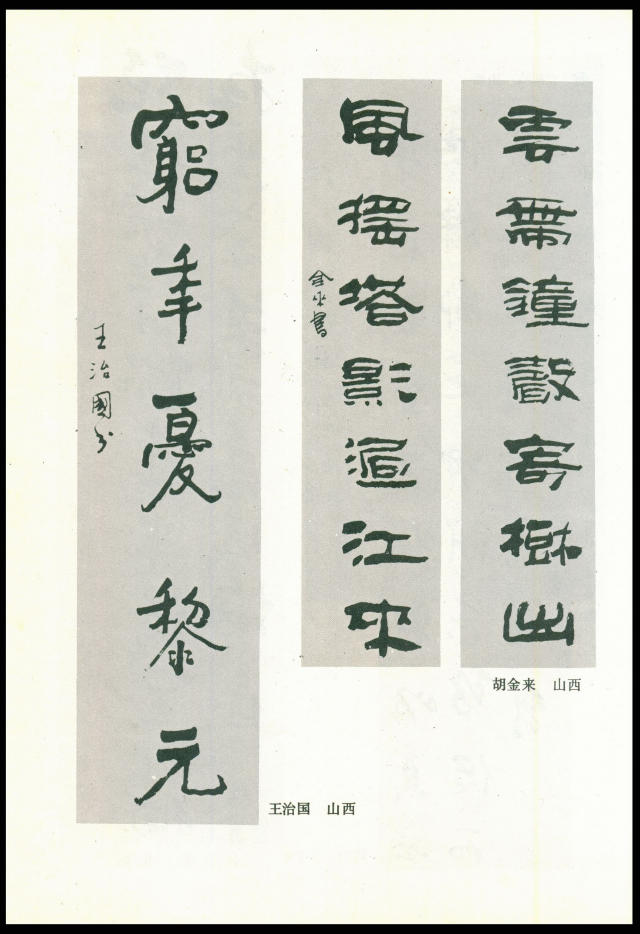 雲帶鐘聲穿樹出
風搖塔影過江來
金來書
胡金来 山西
窮年憂黎元
王治國书
王治国 山西